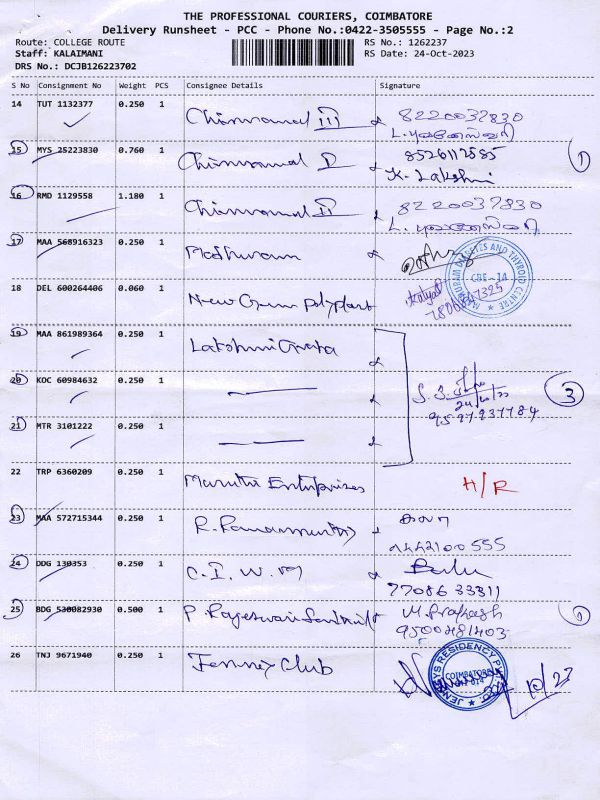 THE PROFESSIONAL COURIERS, COIMBATORE
Delivery Runsheet - PCC - Phone No.:0422-3505555 - Page No.:2
Route: COLLEGE ROUTE
RS No.: 1262237
Staff: KALAIMANI
RS Date: 24-Oct-2023
DRS No.: DCJB126223702
S No Consignment No Weight PCS Consignee Details Signature
14 TUT 1132377 0.250 1 III 8220037830
L.
15 MYS 25223830 0.760 1 8526117585
K. Lakshmi
1
16 RMD 1129558 1.180 1 II 8220037830
L.
17 MAA 568916323 0.250 1 Madhuram
DIABETES AND THYROID CENTRE
CBE-14
18 DEL 600264406 0.060 1 New Gem Polyplast
19 MAA 861989364 0.250 1 Lakshmi
20 KOC 60984632 0.250 1
3
9597937784
21 MTR 3101222 0.250 1
22 TRP 6360209 0.250 1 Maruthi Enterprises H/R
23 MAA 572715344 0.250 1 R. Ramamurthy
9442100555
24 DDG 130353 0.250 1 C. I. W. Balu
77086 33311
25 BDG 530082930 0.500 1 P. Rajeswari M. Prakash
9500481403
1
26 TNJ 9671940 0.250 1 Club
JENNEYS RESIDENCY PVT
COIMBATORE